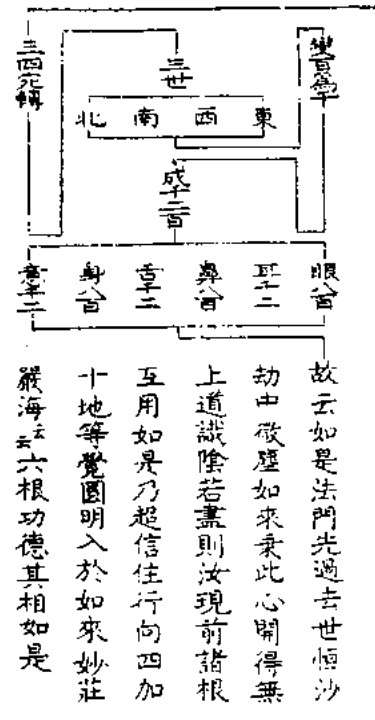 變百為千
三世
三四宛轉
東
西
南
北
成千二百
眼八百
耳千二
鼻八百
舌千二
身八百
意千二
故云如是法門先過去世恒沙
劫中微塵如來乘此心開得無
上道識陰若盡則汝現前諸根
互用如是乃超信住行向四加
十地等覺圓明入於如來妙莊
嚴海云云六根功德其相如是